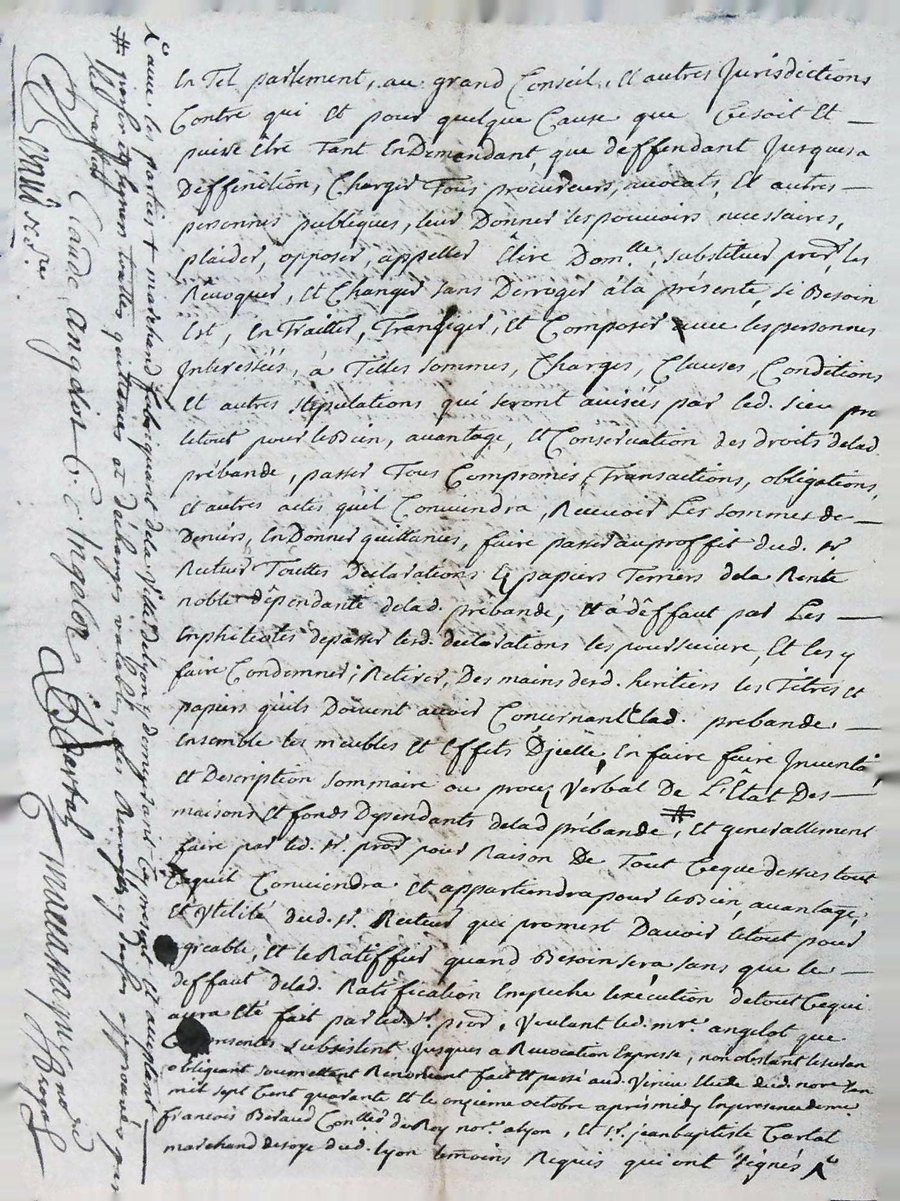 En Tel parlement, au grand Conseil, et autres Jurisdictions
Contre qui Et pour quelque Cause que Cesoit Et
puisse être Tant En Demandant que deffendant Jusques a
Deffinition, Charger Tous procureurs, avocats, Et autres
personnes publiques, leur Donner les pouvoirs necessaires,
plaider, opposer, appeller Elire Dom.lle, substituer procr, les
Revoquer, Et Changer sans Derroger ala présente, si Besoin
Est, En Traitter, Transiger, Et Composer avec les personnes
Interessées, à Telles sommes, Charges, Clauses, Conditions
Et autres stipulations qui seront avisées par led. sieu pro
letout pour lebien, avantage, Et Conservation des droits delad
prébande, passer Tous Compromis, Transactions, obligations,
et autres actes qu'il Conviendra, Recevoir Les sommes de
Deniers, En Donner quittances, faire passer auproffit dud. sr
Recteur Touttes Declarations Et papiers Terriers dela Rente
noble dépendante delad. prébande, Et à déffaut par Les
Emphiteotes depasser lesd. declarations les poursuivre, Et les y
faire Condemner, Retirer, Des mains desd. heritiers les Titres et
papiers quils Doivent avoir Concernant Lad. prebande
Ensemble les meubles Et Effets D'icelle, En faire faire Inventre
et Description sommaire ou procez Verbal De L'Etat Des
maisons Et fonds Dependants delad prébande #, Et generallement
faire par led. sr. procr pour Raison De Tout Ceque dessus tout
Cequil Conviendra Et appartiendra pour lebien, avantage,
Et Utilité dud. sr. Recteur qui promest Davoir letout pour
agreable, Et le Ratiffier quand Besoin sera sans que le
deffaut delad. Ratiffication Empeche lexécution detout Cequi
aura Eté fait par led. sr. procr, Voulant led. mre. angelot que
Ces presentes subsistent Jusques a Revocation Expresse, nonobstant
obligeant soumettant Renoncant fait Et passé aud. Etude dud. nore Lan
mil sept Cent quarante et le onzieme octobre aprés midy En presence de me
francois Beraud Coner du Roy nore. alyon, Et sr. jean baptiste Cartal
marchand desoye dud. lyon temoins Requis qui ont signés
avec les parties + marchand fabriquant dela Ville de lyon y demeurant Cy present Et acceptant
# passer et signer touttes quittances et décharges valables, approuvés
Claude angelot
Cartal